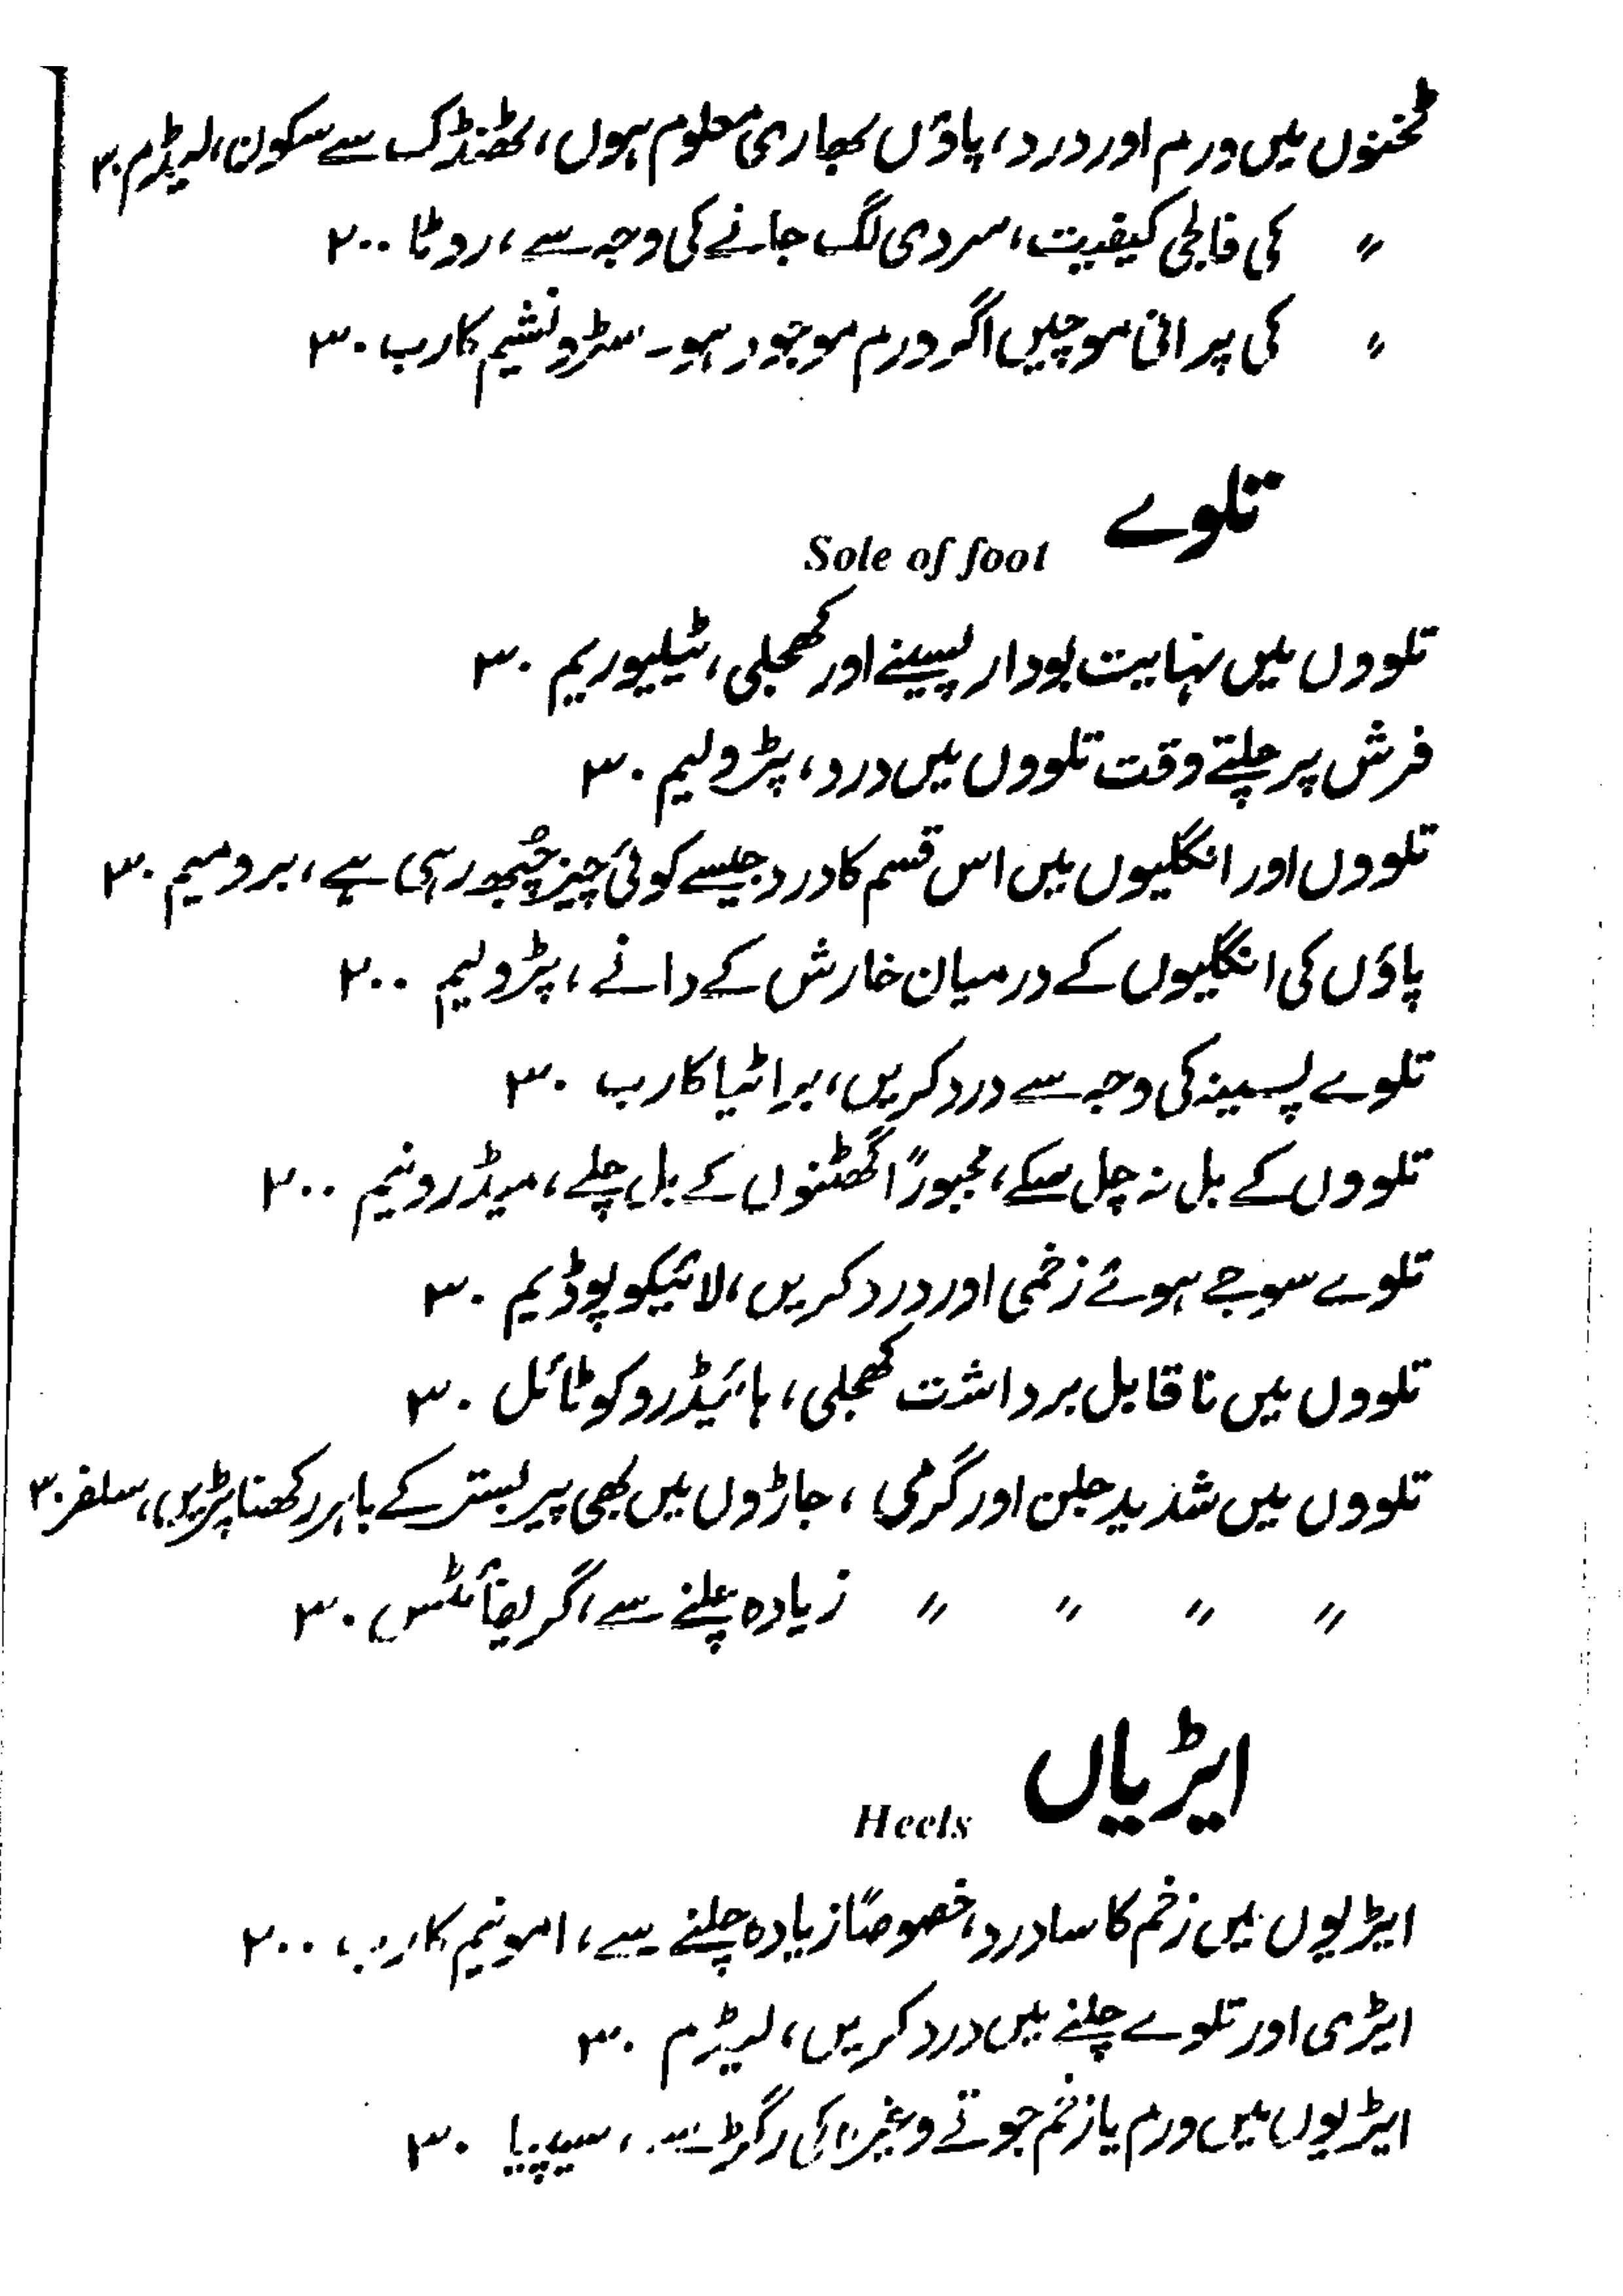 ٹخنوں میں ورم اور درد، پاؤں بھاری معلوم ہوں، ٹھنڈک سے سکون، لیڈم ۳۰
〃 کی فالجی کیفیت، سردی لگ جانے کی وجہ سے، روٹا ۲۰۰
〃 کی پرانی موچیں اگر ورم موجود ہو۔ سٹرونشیم کارب ۳۰
تلوے
Sole of foot
تلووں میں نہایت بودار پسینے اور کھجلی، ٹیلیوریم ۳۰
فرش پر چلتے وقت تلووں میں درد، پٹرولیم ۳۰
تلووں اور انگلیوں میں اس قسم کا درد جیسے کوئی چیز چُبھ رہی ہے، برومیم ۳۰
پاؤں کی انگلیوں کے درمیان خارش کے دانے، پٹرولیم ۲۰۰
تلوے پسینہ کی وجہ سے درد کریں، براٹیا کارب ۳۰
تلووں کے بل نہ چل سکے، مجبوراً گھٹنوں کے بل چلے، میڈرونیم ۲۰۰
تلوے سوجے ہوئے زخمی اور درد کریں، لائیکوپوڈیم ۳۰
تلووں میں ناقابل برداشت کھجلی، ہائیڈروکوٹائل ۳۰
تلووں میں شدید جلن اور گرمی، جاڑوں میں بھی پیر بستر کے باہر رکھنا پڑیں، سلفر ۳۰
〃 〃 〃 〃 زیادہ چلنے سے، گریفائٹس ۳۰
ایڑیاں
Heels
ایڑیوں میں زخم کا سا درد، خصوصاً زیادہ چلنے سے، امونیم کارب ۲۰۰
ایڑی اور تلوے چلنے میں درد کریں، لیڈم ۳۰
ایڑیوں میں ورم یا زخم جوتے وغیرہ کی رگڑ سے، سیپیا ۳۰